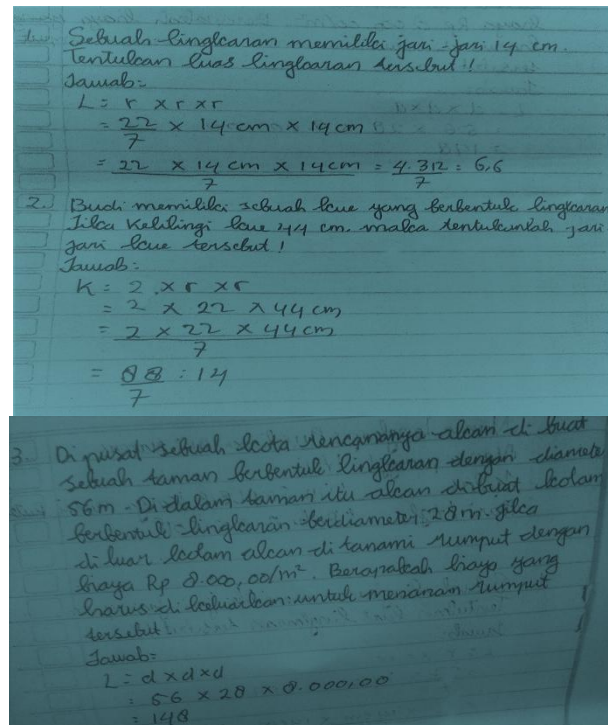 1. Sebuah lingkaran memiliki jari-jari 14 cm.
Tentukan luas lingkaran tersebut!
Jawab=
L = r x r x r
= 22/7 x 14 cm x 14 cm
= 22 x 14 cm x 14 cm / 7 = 4.312 / 7 = 6,6
2. Budi memiliki sebuah kue yang berbentuk lingkaran
Jika kelilingi kue 44 cm. maka tentukanlah jari
jari kue tersebut!
Jawab=
K = 2 x r x r
= 2 x 22 x 44 cm
= 2 x 22 x 44 cm / 7
= 88 / 7 : 14
3. Di pusat sebuah kota rencananya akan di buat
sebuah taman berbentuk lingkaran dengan diameter
56 m. Di dalam taman itu akan dibuat kolam
berbentuk lingkaran berdiameter 28 m. jika
di luar kolam akan di tanami rumput dengan
biaya Rp 8.000,00/m². Berapakah biaya yang
harus di keluarkan untuk menanam rumput
tersebut
Jawab=
L = d x d x d
= 56 x 28 x 8.000,00
= 148